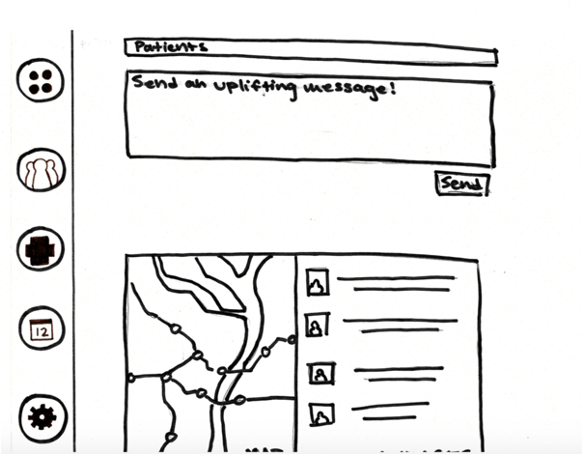 Patients
Send an uplifting message!
Send
12